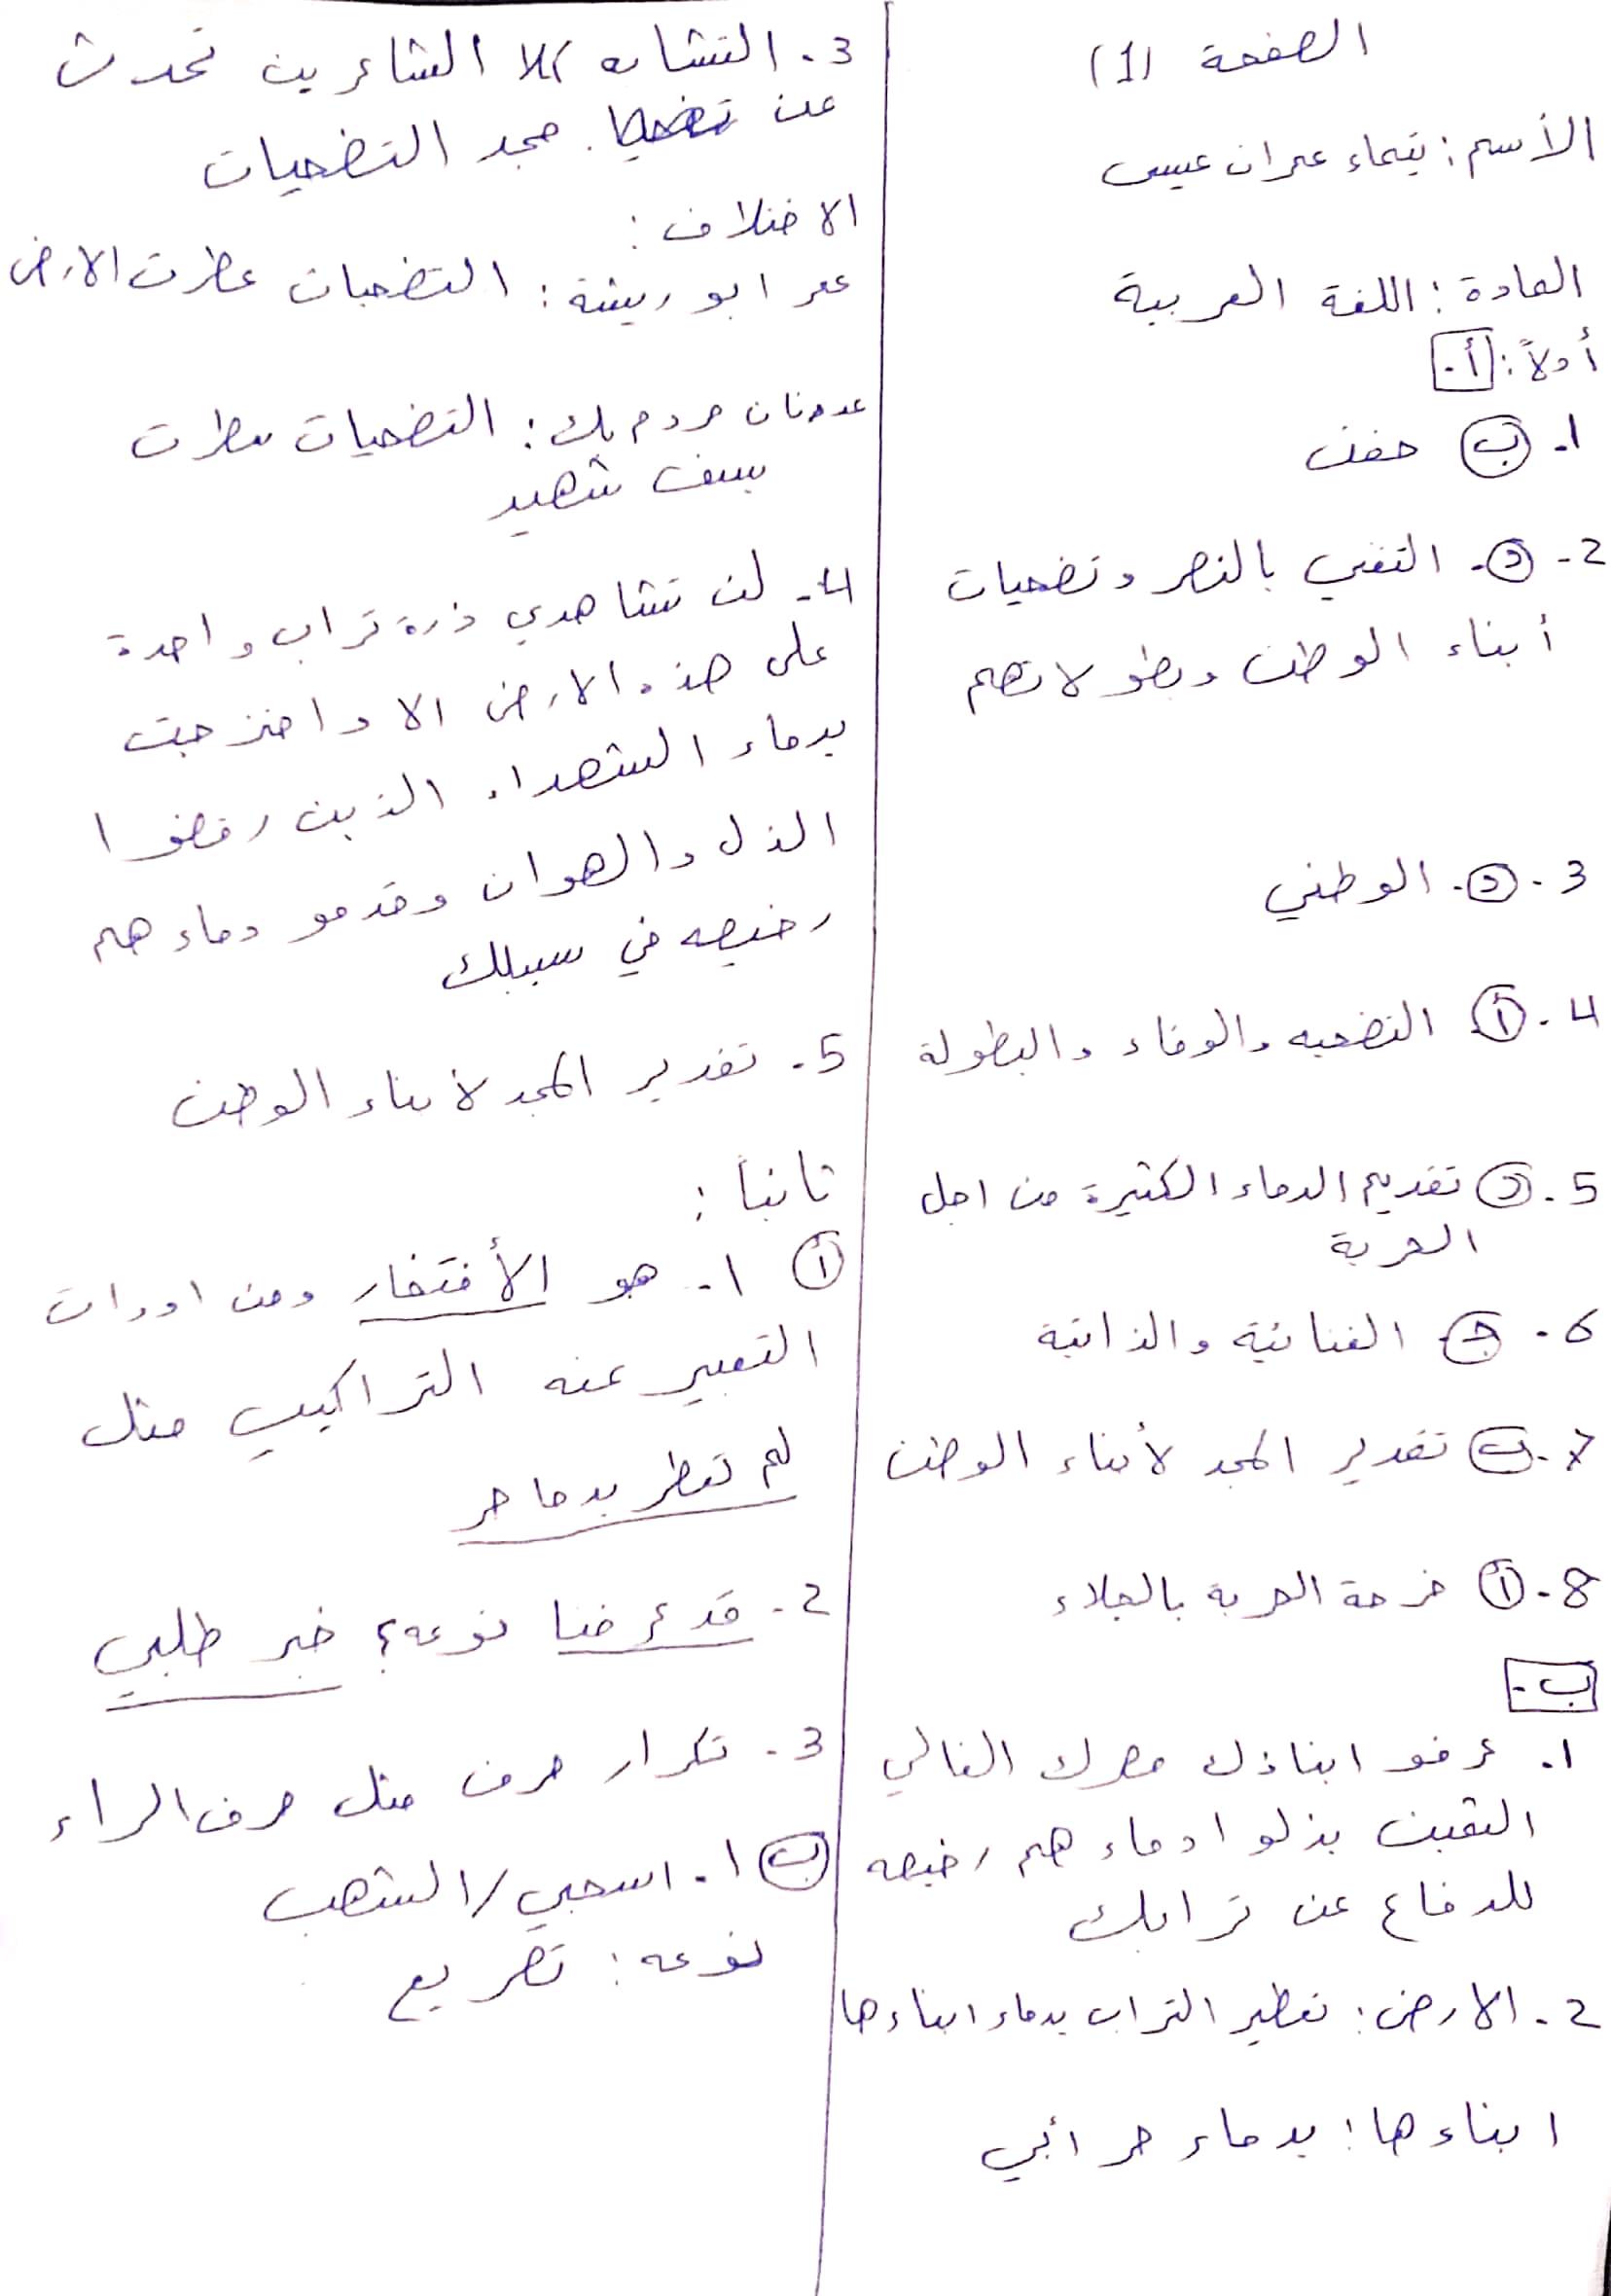 الصفحة (1)
الأسم: يتماء عمران عيسى
المادة: اللغة العربية
أولاً: أ.
1. ب حفن
2- د. التغني بالنصر وتضحيات
أبناء الوطن وبطولاتهم
3. د. الوطني
4. أ التضحيه والوفاء والبطولة
5. د تقديم الدماء الكثيرة من اجل
الحرية
6. ج الغنائية والذاتية
7. ب تقدير المجد لأبناء الوطن
8. أ فرحة الحرية بالجلاء
ب.
1. عرفو ابناؤك مهرك الغالي
التقين بذلو ادماءهم رخيصه
للدفاع عن ترابك
2. الارض: تعطير التراب بدماء ابناءها
ابناءها: بدماء حر أبي
3. التشابه كلا الشاعرين تحدث
عن مجد التضحيات
الاختلاف:
عمر ابو ريشة: التضحيات عطرت الارض
عدنان مردم بك: التضحيات سطرت
بسيف شهيد
4. لن تشاهدي ذرة تراب واحدة
على هذه الارض الا وامتزجت
بدماء الشهداء الذين رفضوا
الذل والهوان وقدمو دماءهم
رخيصه في سبيلك
5. تقدير المجد لأبناء الوطن
ثانياً:
أ 1. هو الأفتخار ومن ادوات
التعبير عنه التراكيب مثل
لم تعطر بدما حر
2. قد عرفنا نوعه؟ خبر طلبي
3. تكرار حرف مثل حرف الراء
ب 1. اسحبي/الشهب
نوعه: تصريع